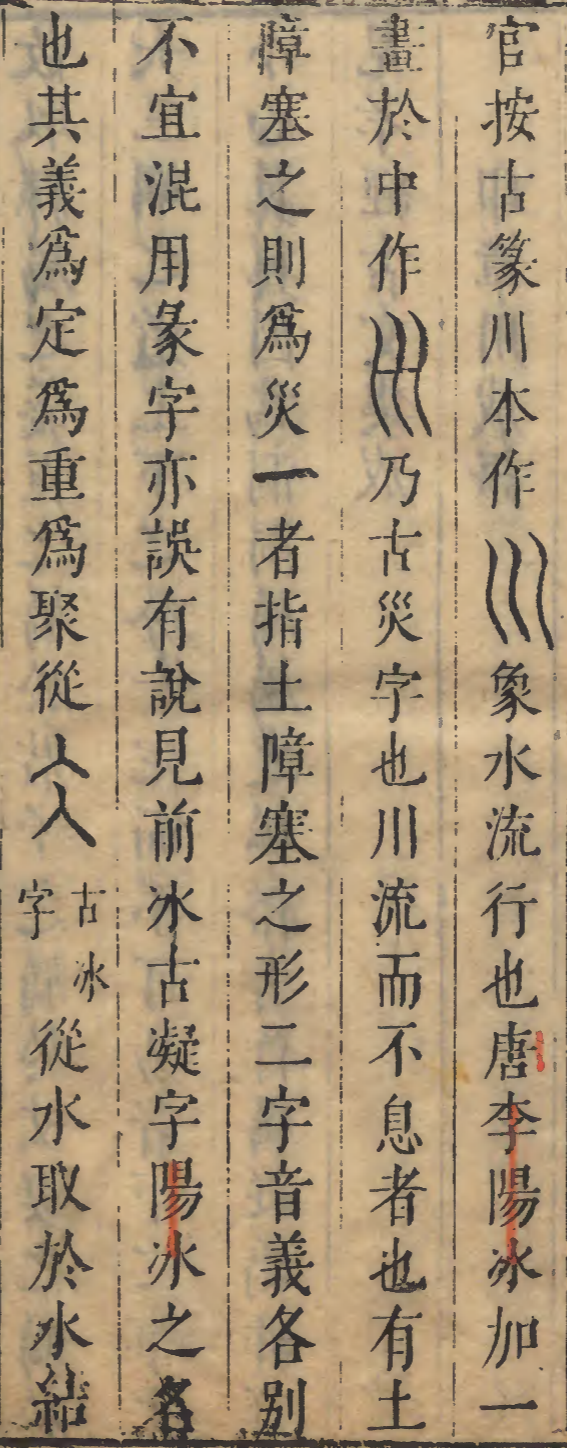 官按古篆川本作巛象水流行也唐李陽冰加一
畫於中作𡿧乃古災字也川流而不息者也有土
障塞之則爲災一者指土障塞之形二字音義各別
不宜混用彖字亦誤有說見前冰古凝字陽冰之名
也其義爲定爲重爲聚從仌古冰字從水取於水結